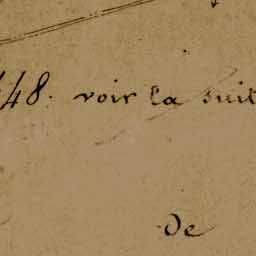 48. voir la suit
De